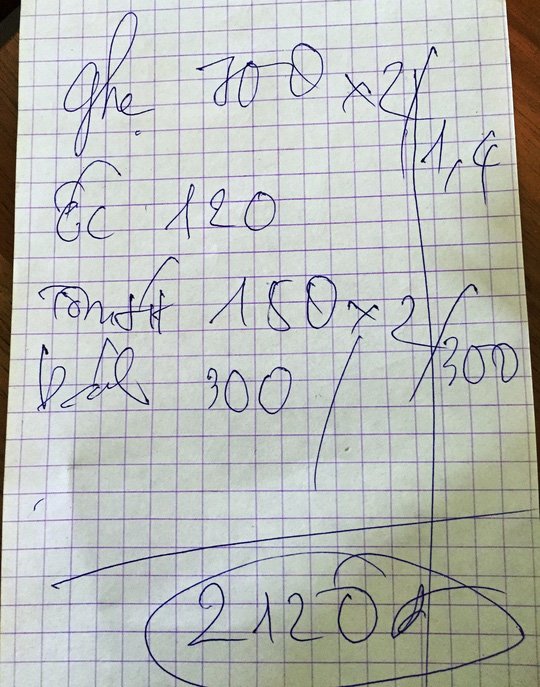 ghẹ 700 x 2/ 1,4
Ốc 120
Tôm 150 x 2/ 300
300 /
2120đ